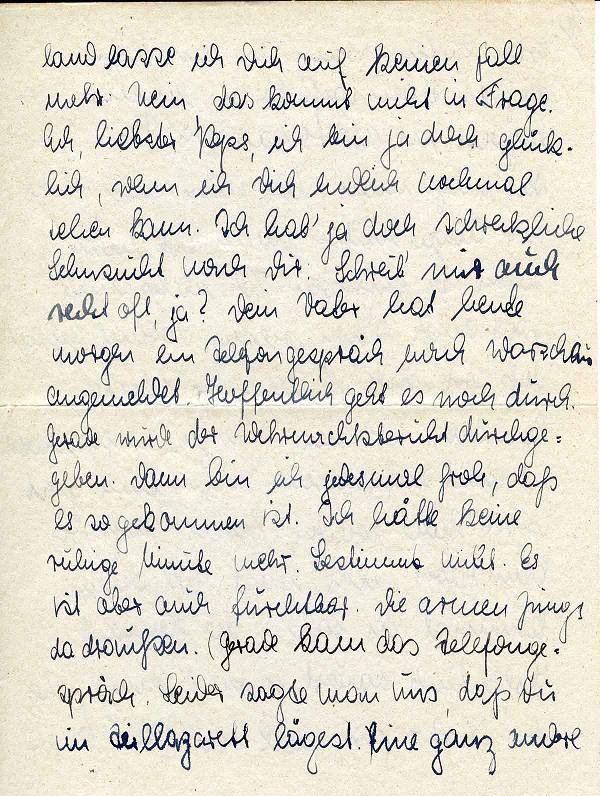 land lasse ich Dich auf keinen Fall
mehr. Nein das kommt nicht in Frage.
Ach, liebster Peps, ich bin ja doch glück-
lich, wenn ich Dich endlich nochmal
sehen kann. Ich hab' ja doch schreckliche
Sehnsucht nach Dir. Schreib' mir auch
recht oft, ja? Dein Vater hat heute
morgen ein Telefongespräch nach Warschau
angemeldet. Hoffentlich geht es noch durch.
Gerade wurde der Wehrmachtsbericht durchge=
geben. Dann bin ich jedesmal froh, daß
es so gekommen ist. Ich hätte keine
ruhige Minute mehr. Bestimmt nicht. Es
ist aber auch furchtbar. Die armen Jungs
da draußen. (Gerade kam das Telefonge=
spräch. Leider sagte man uns, daß Du
im Teillazarett lägest. Eine ganz andre